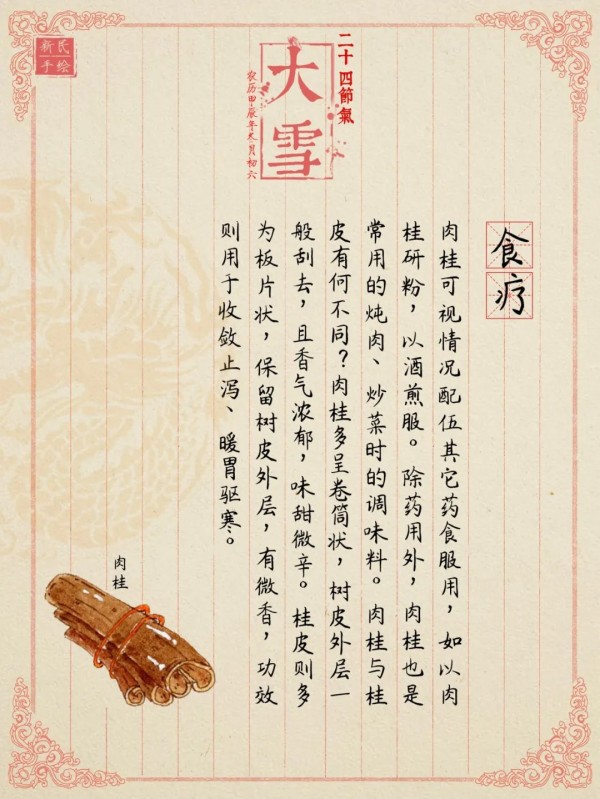 新民
手绘
二十四節氣
大雪
农历甲辰年冬月初六
食疗
肉桂可视情况配伍其它药食服用，如以肉
桂研粉，以酒煎服。除药用外，肉桂也是
常用的炖肉、炒菜时的调味料。肉桂与桂
皮有何不同？肉桂多呈卷筒状，树皮外层一
般刮去，且香气浓郁，味甜微辛。桂皮则多
为板片状，保留树皮外层，有微香，功效
则用于收敛止泻、暖胃驱寒。
肉桂